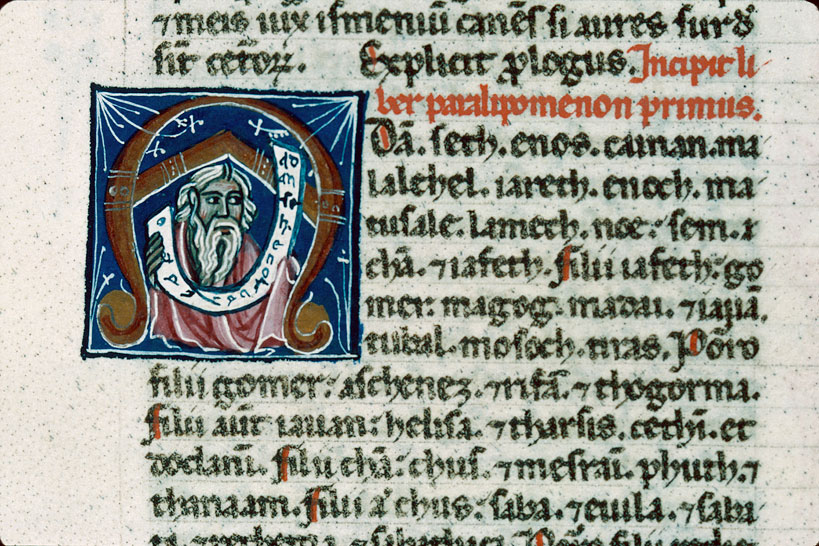 ⁊ meis uix ismeniū canēs si aures surd᷒
sūt cetoꝝ. Explicit ꝓlogus. Incipit li
ber paralipomenon primus.
Dā. seth. enos. cainan. ma
lalehel. iareth. enoch. ma
tusalē. lamech. noe: sem. ⁊
chā. ⁊ iafeth. filii iafeth: go
mer: magog. madai. ⁊ iauā.
tubal. mosoch. tiras. Porro
filii gomer: aschenez. ⁊ rifā. ⁊ thogorma.
filii aūt iauan: helisa. ⁊ tharsis. cethī. et
dodanī. filii chā: chus. ⁊ mesraī. phuth. ⁊
chanaam. filii aū chus: saba. ⁊ euila. ⁊ saba